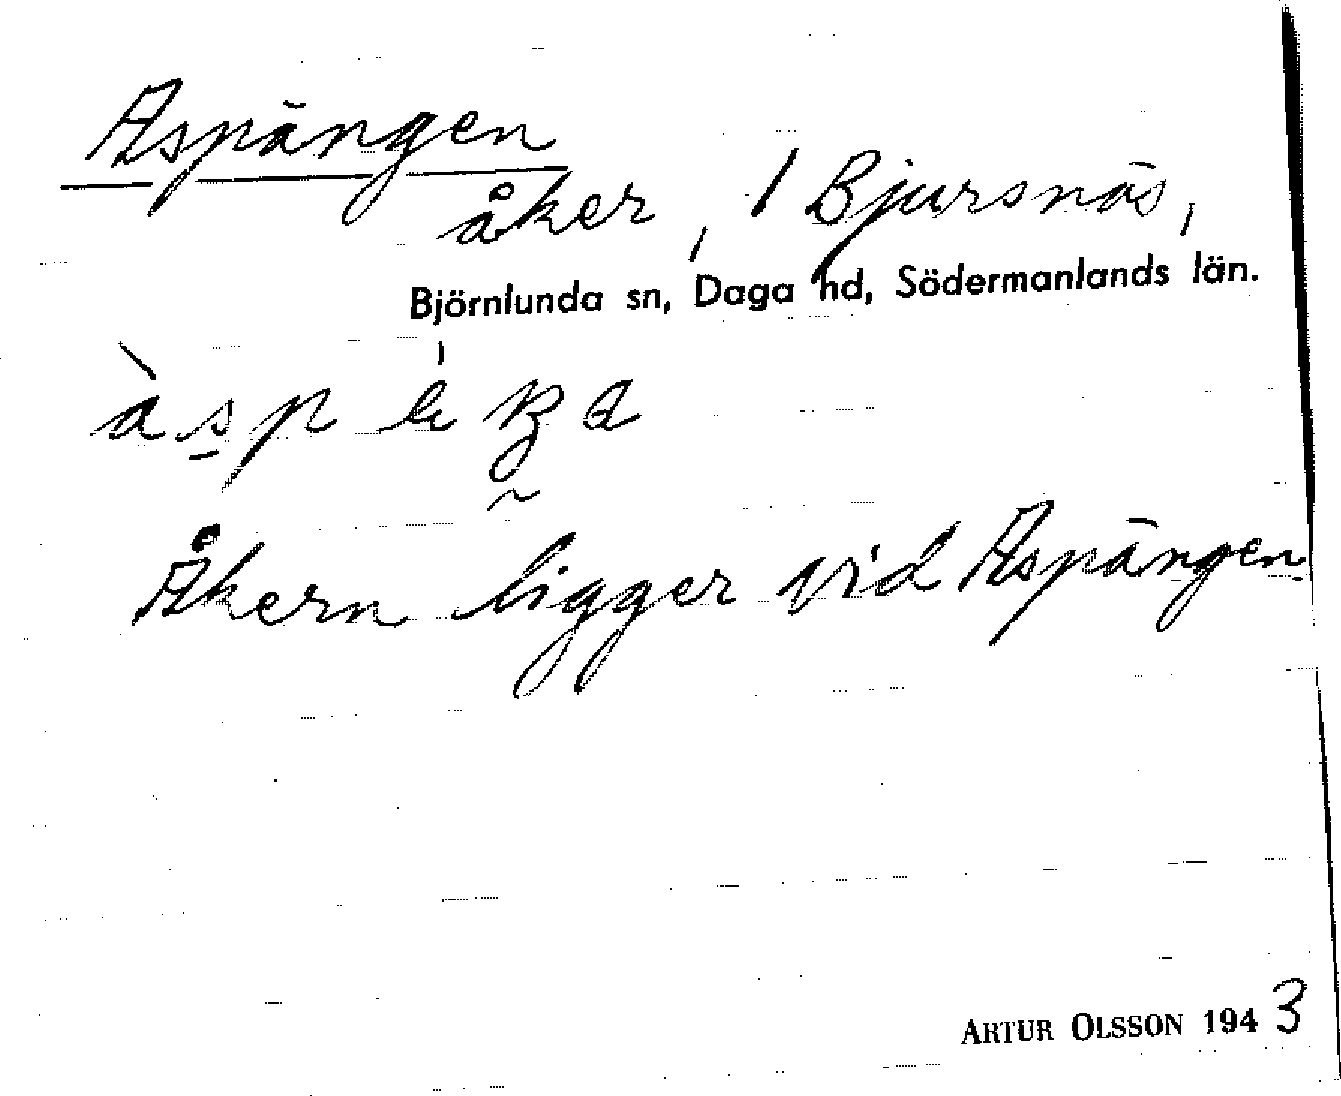 Aspängen
åker, 1 Bjursnäs,
Björnlunda sn, Daga hd, Södermanlands län.
Åkern ligger vid Aspängen
ARTUR OLSSON 1943